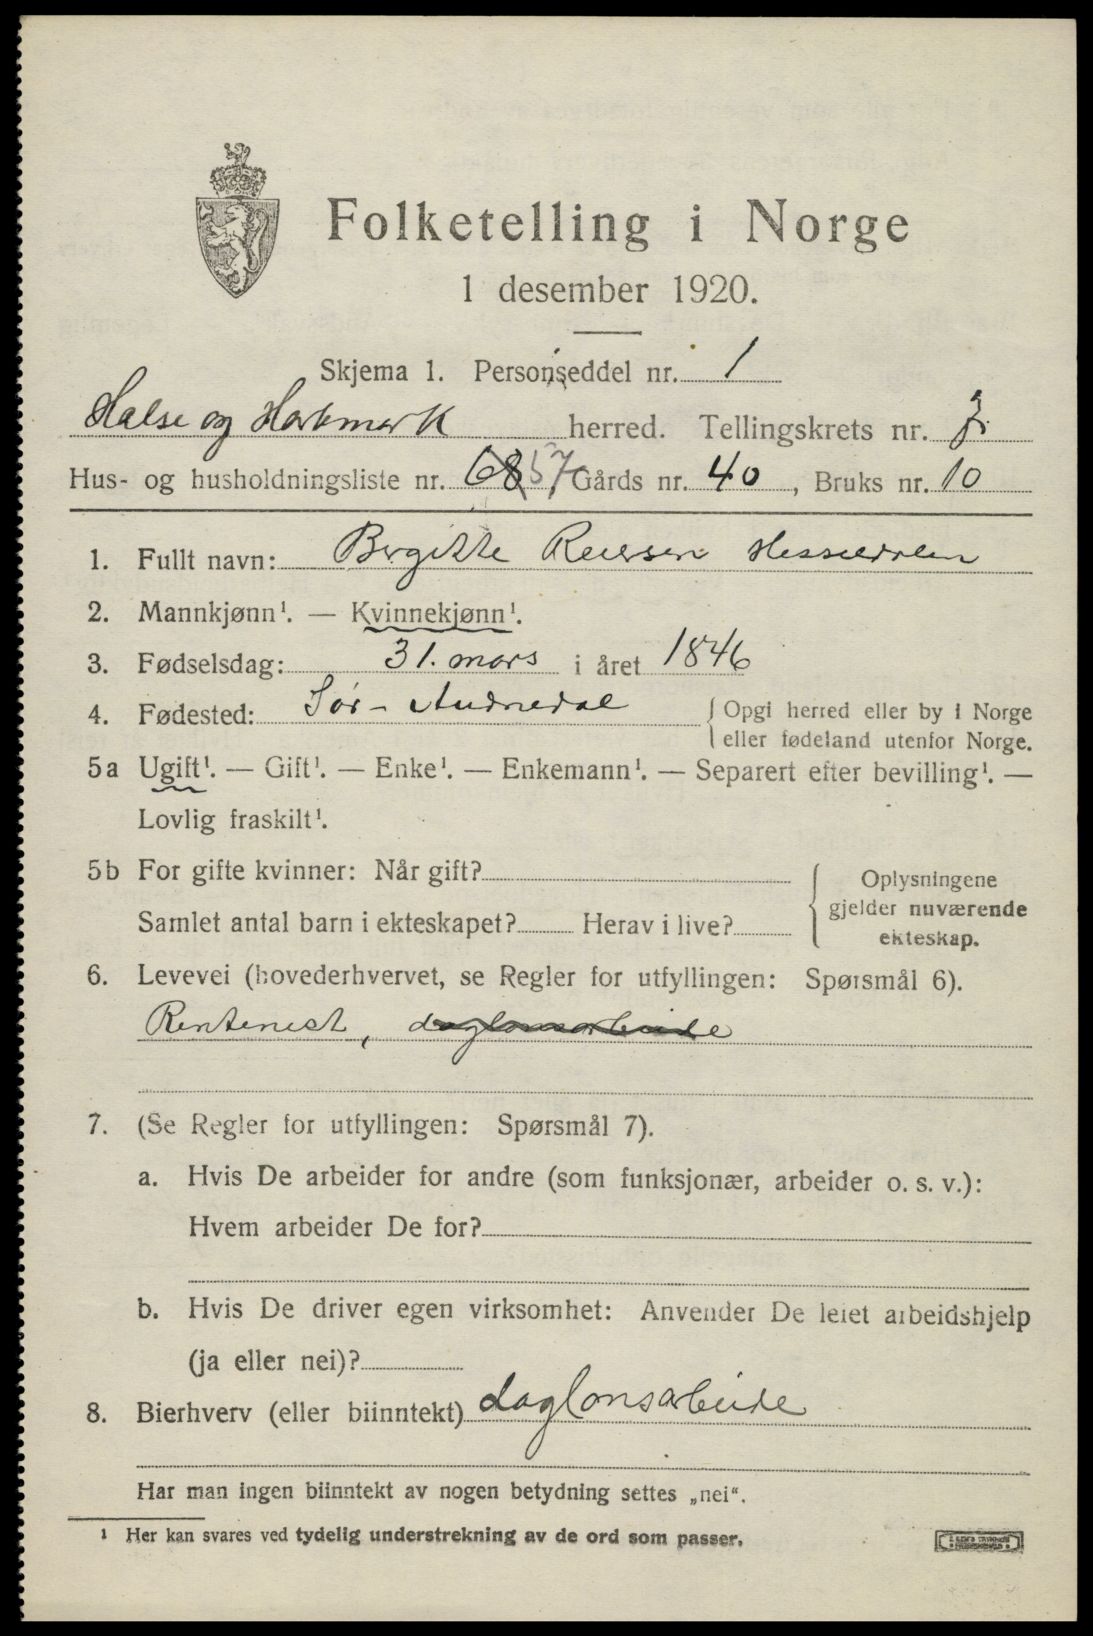 Folketelling i Norge
1 desember 1920.
Skjema 1. Personseddel nr. 1
Halse og Harkmark herred. Tellingskrets nr. 7.
Hus- og husholdningsliste nr. 68 57 Gårds nr. 40, Bruks nr. 10
1. Fullt navn: Birgitte Reiersen
2. Mannkjønn¹. — Kvinnekjønn¹.
3. Fødselsdag: 31. mars i året 1846
4. Fødested: Sør-Audnedal { Opgi herred eller by i Norge
eller fødeland utenfor Norge.
5a Ugift¹. — Gift¹. — Enke¹. — Enkemann¹. — Separert efter bevilling¹. —
Lovlig fraskilt¹.
5b For gifte kvinner: Når gift?
Samlet antal barn i ekteskapet? Herav i live?
Oplysningene
gjelder nuværende
ekteskap.
6. Levevei (hovederhvervet, se Regler for utfyllingen: Spørsmål 6).
Rentenist, daglønsarbeide
7. (Se Regler for utfyllingen: Spørsmål 7).
a. Hvis De arbeider for andre (som funksjonær, arbeider o. s. v.):
Hvem arbeider De for?
b. Hvis De driver egen virksomhet: Anvender De leiet arbeidshjelp
(ja eller nei)?
8. Bierhverv (eller biinntekt) daglønsarbeide
Har man ingen biinntekt av nogen betydning settes „nei“.
¹ Her kan svares ved tydelig understrekning av de ord som passer.